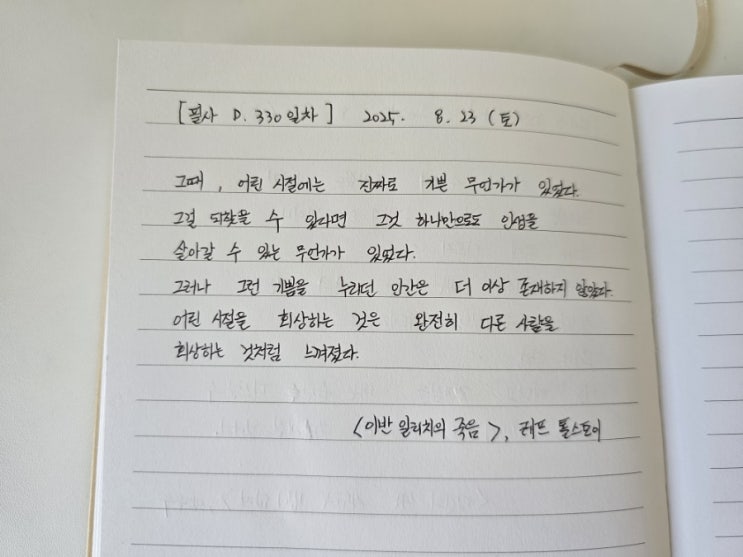 [필사 D. 330일차] 2025. 8. 23 (토)
그때, 어린 시절에는 진짜로 기쁜 무언가가 있었다.
그걸 되찾을 수 있다면 그것 하나만으로도 인생을
살아갈 수 있는 무언가가 있었다.
그러나 그런 기쁨을 누리던 인간은 더 이상 존재하지 않았다.
어린 시절을 회상하는 것은 완전히 다른 사람을
회상하는 것처럼 느껴졌다.
<이반 일리치의 죽음>, 레프 톨스토이